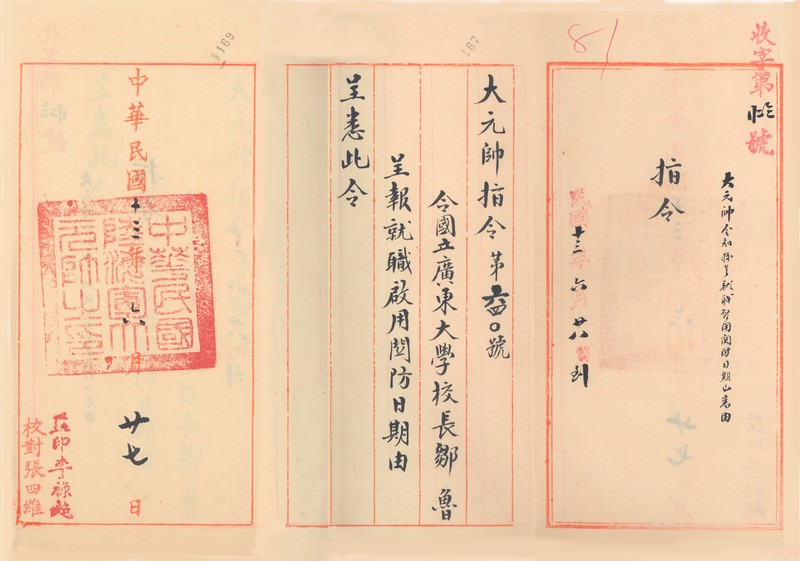 收字第 號
大元帥令知據呈就職啓用關防日期已悉由
指令
民國十三年六月廿八 到
81
167
大元帥指令第六四〇號
令國立廣東大學校長鄒魯
呈報就職啟用關防日期由
呈悉此令
1169
中華民國十三年六月廿七日
中華民國陸海軍大元帥之印
監印李祿超
校對張四維